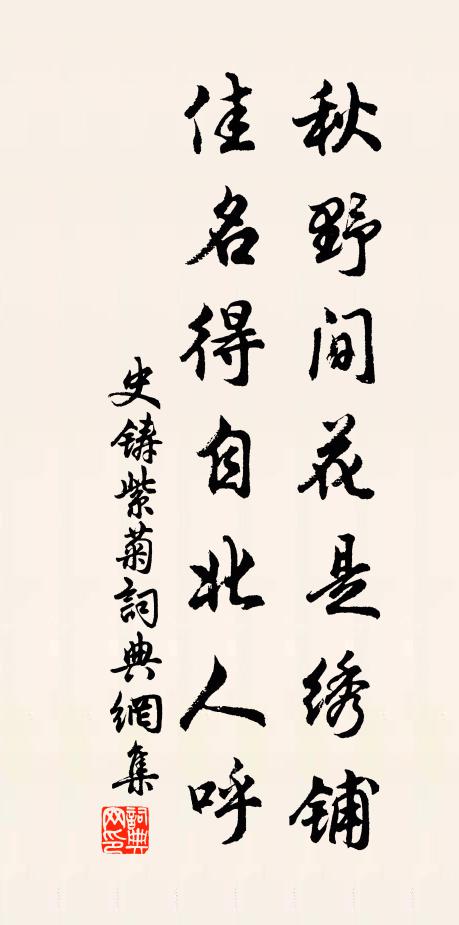 秋野间花是绣铺
佳名得自北人呼
史鑄紫菊詞典網集
詞典网印